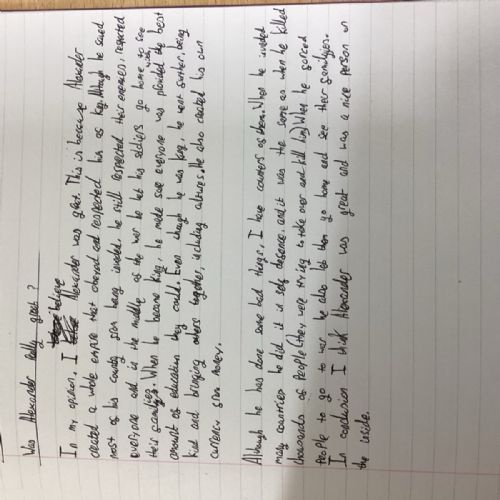 Was Alexander really great?
In my opinion, I believe Alexander was great. This is because Alexander
created a whole empire that obeyed and respected him as king. Although he saved
most of his country from being invaded, he still respected their enemies, respected
everyone and in the middle of the war he let his soldiers go home to see
their families. When he became king, he made sure everyone was provided with the best
amount of education they could. Even though he was king, he went further being
kind and bringing others together, including cultures. He also created his own
currency from money.
Although he has done some bad things, I have counters of them. When he invaded
many countries he did it in self defence, and it was the same as when he killed
thousands of people (they were trying to take over and kill him) When he forced
people to go to war he also let them go home and see their families.
In conclusion I think Alexander was great and was a nice person on
the inside.